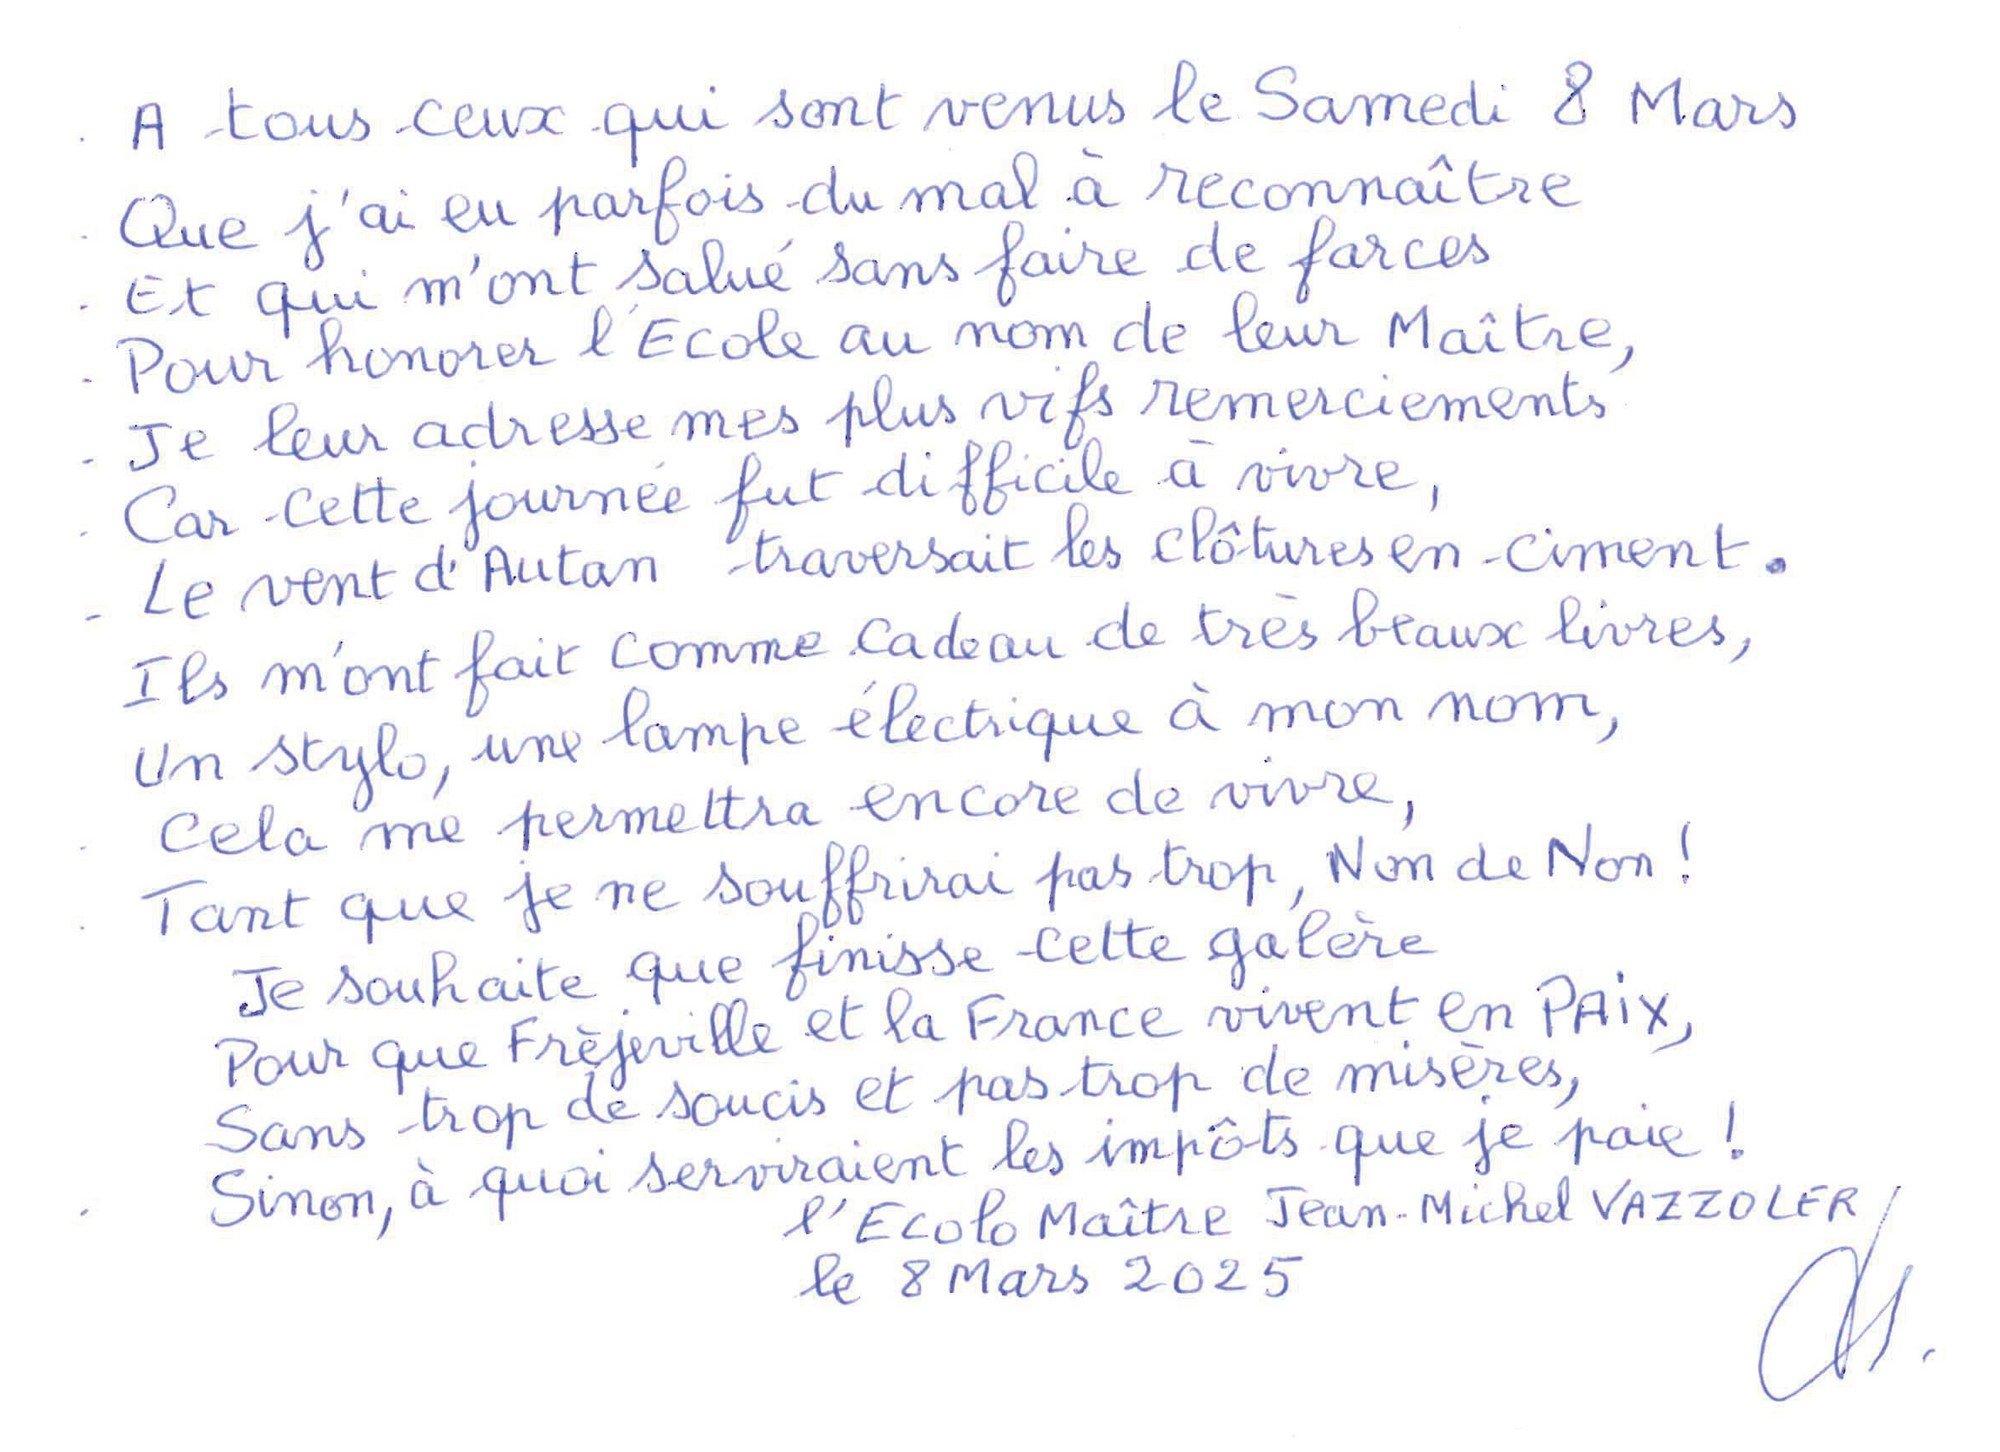 A tous ceux qui sont venus le Samedi 8 Mars
Que j'ai eu parfois du mal à reconnaître
Et qui m'ont salué sans faire de farces
Pour honorer l'Ecole au nom de leur Maître,
Je leur adresse mes plus vifs remerciements
Car cette journée fut difficile à vivre,
Le vent d'Autan traversait les clôtures en ciment.
Ils m'ont fait comme cadeau de très beaux livres,
Un stylo, une lampe électrique à mon nom,
Cela me permettra encore de vivre,
Tant que je ne souffrirai pas trop, Non de Non !
Je souhaite que finisse cette galère
Pour que Frèjeville et la France vivent en PAIX,
Sans trop de soucis et pas trop de misères,
Sinon, à quoi serviraient les impôts que je paie !
l'Ecolo Maître Jean-Michel VAZZOLER
le 8 Mars 2025